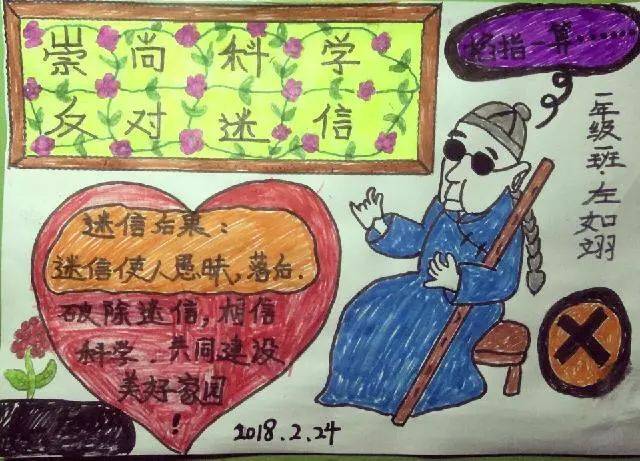 崇尚科学
反对迷信
掐指一算……
一年级一班.左如翊
迷信后果：
迷信使人愚昧，落后.
破除迷信，相信
科学.共同建设
美好家园
！
2018.2.24